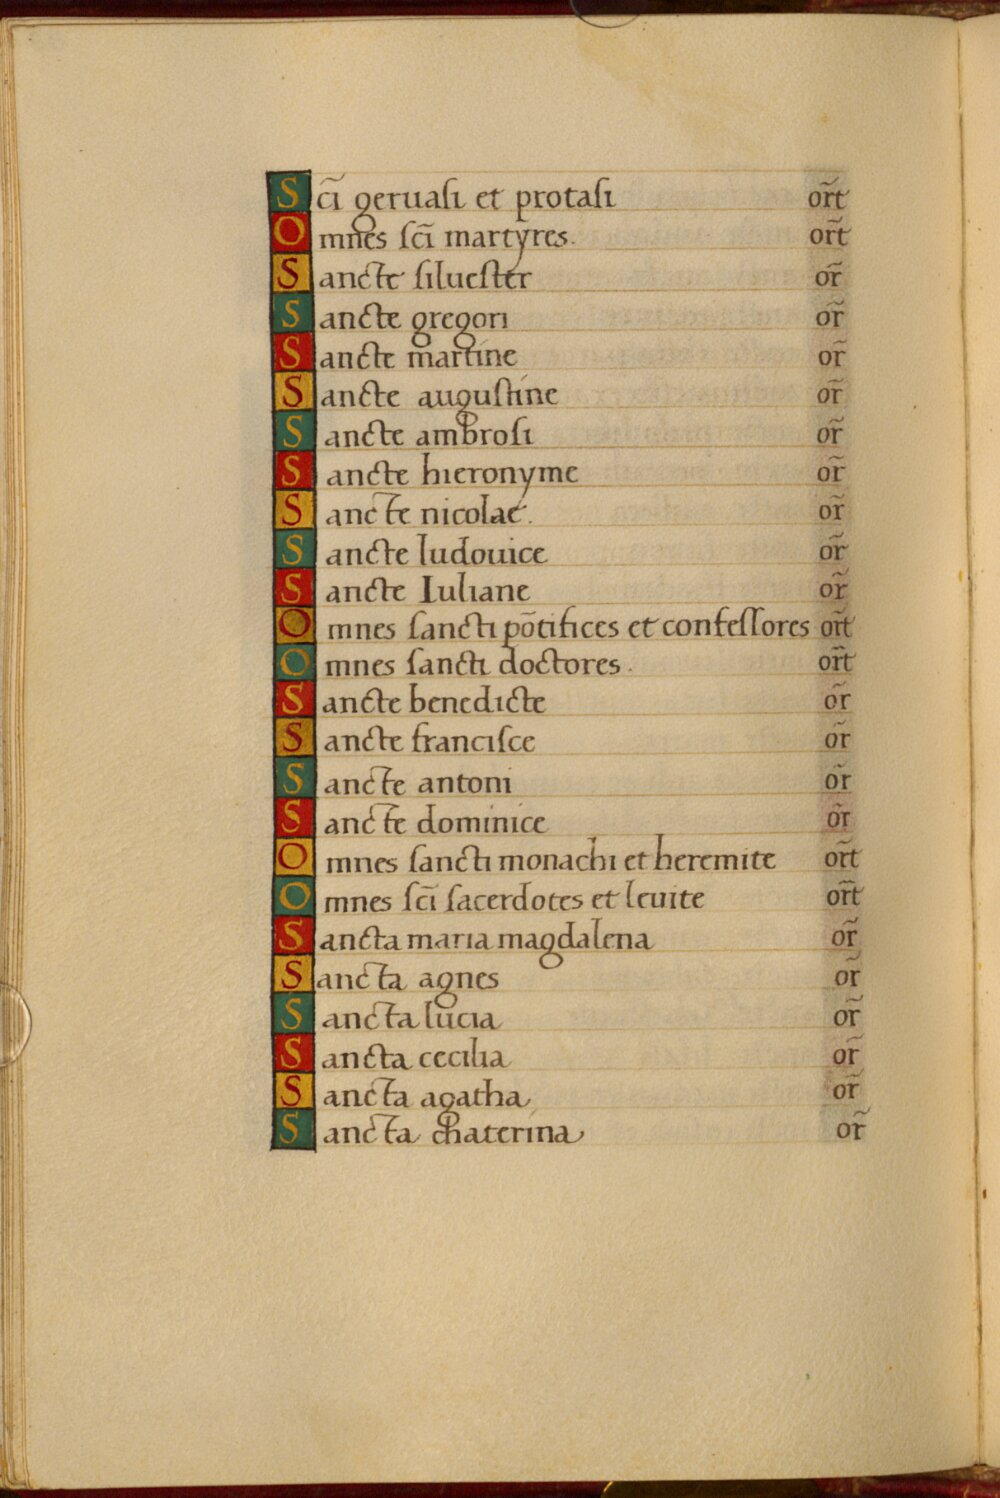 Scı̄ geruasi et protasi or̄t
Omnes sc̄i martyres. or̄t
Sancte siluester or̄
Sancte gregori or̄
Sancte martine or̄
Sancte augustine or̄
Sancte ambrosi or̄
Sancte hieronyme or̄
Sancte nicolae. or̄
Sancte ludouice or̄
Sancte Iuliane or̄
Omnes sancti pōtifices et confessores or̄t
Omnes sancti doctores. or̄t
Sancte benedicte or̄
Sancte francisce or̄
Sancte antoni or̄
Sancte dominice or̄
Omnes sancti monachi et heremite or̄t
Omnes sc̄i sacerdotes et leuite or̄t
Sancta maria magdalena or̄
Sancta agnes or̄
Sancta lucia or̄
Sancta cecilia or̄
Sancta agatha or̄
Sancta chaterina or̄